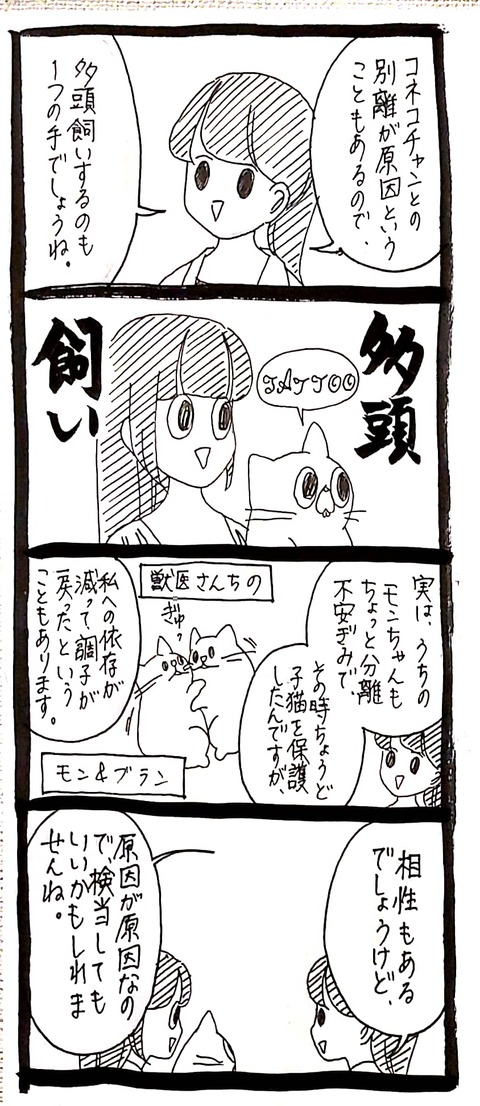 コネコチャンとの
別離が原因という
こともあるので、
多頭飼いするのも
1つの手でしょうね。
多頭
TATTOO
飼い
実は、うちの
モンちゃんも
ちょっと分離
不安ぎみで、
その時ちょうど
子猫を保護
したんですが、
獣医さんちの
ぎゅっ
モン&ブラン
私への依存が
減って、調子が
戻ったという
こともあります。
相性もある
でしょうけど、
原因が原因なの
で、検当しても
いいかもしれま
せんね。